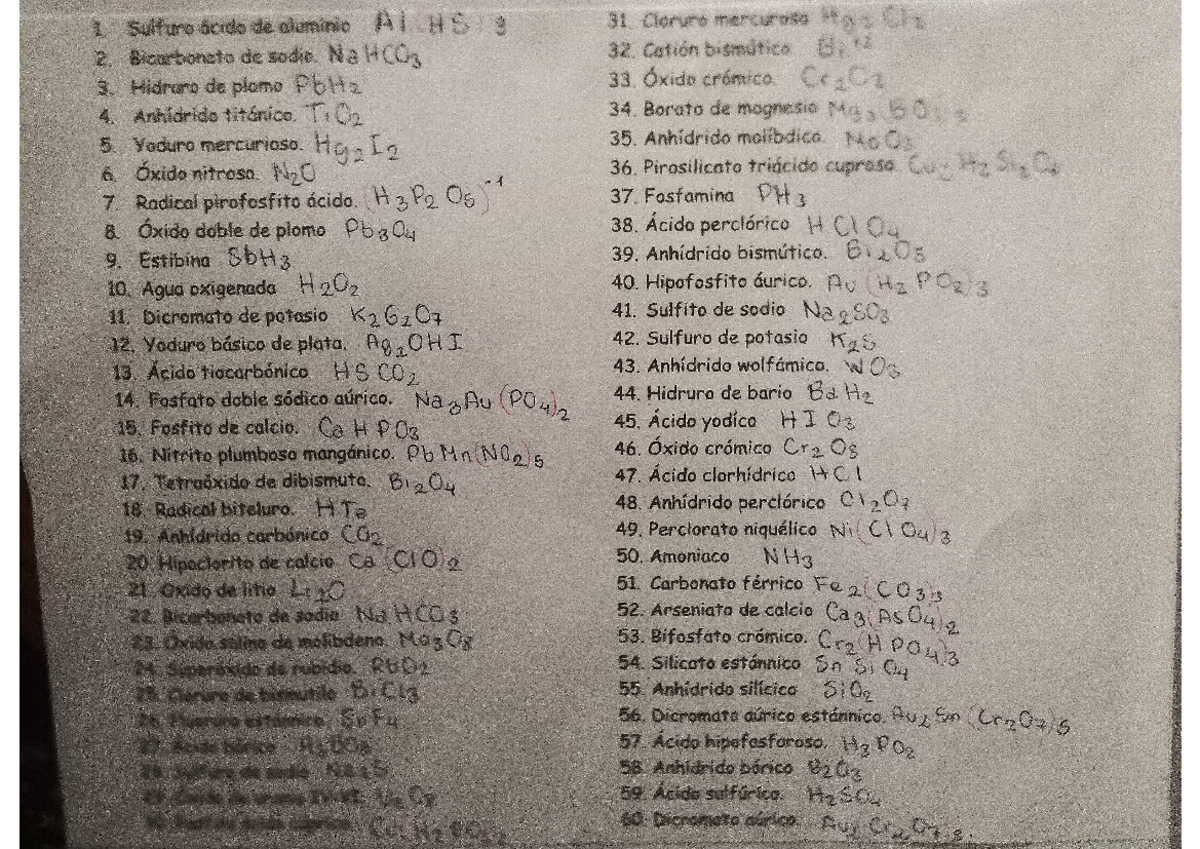 1. Sulfuro ácido de aluminio Al(HS)3
2. Bicarbonato de sodio. NaHCO3
3. Hidruro de plomo PbH2
4. Anhídrido titánico. TiO2
5. Yoduro mercurioso. Hg2I2
6. Óxido nitroso. N2O
7. Radical pirofosfito ácido. (H3P2O5)-1
8. Óxido doble de plomo Pb3O4
9. Estibina SbH3
10. Agua oxigenada H2O2
11. Dicromato de potasio K2Cr2O7
12. Yoduro básico de plata. Ag2OHI
13. Ácido tiocarbónico HSCO2
14. Fosfato doble sódico aúrico. Na3Au(PO4)2
15. Fosfito de calcio. CaHPO3
16. Nitrito plumboso mangánico. PbMn(NO2)5
17. Tetraóxido de dibismuto. Bi2O4
18. Radical biteluro. HTe
19. Anhídrido carbónico CO2
20. Hipoclorito de calcio Ca(ClO)2
21. Oxido de litio Li2O
22. Bicarbonato de sodio NaHCO3
23. Óxido salino de molibdeno. Mo3O8
24. Superóxido de rubidio. RbO2
25. Cloruro de bismutilo BiCl3
26. Fluoruro estánnico. SnF4
27. Ácido bórico H3BO3
28. Sulfuro de sodio Na2S
31. Cloruro mercuroso Hg2Cl2
32. Catión bismútico Bi
33. Óxido crómico. Cr2O3
34. Borato de magnesio Mg3(BO3)2
35. Anhídrido molíbdico. MoO3
36. Pirosilicato triácido cuproso.
37. Fosfamina PH3
38. Ácido perclórico HClO4
39. Anhídrido bismútico. Bi2O5
40. Hipofosfito áurico. Au(H2PO2)3
41. Sulfito de sodio Na2SO3
42. Sulfuro de potasio K2S
43. Anhídrido wolfámico. WO3
44. Hidruro de bario BaH2
45. Ácido yodíco HIO3
46. Óxido crómico Cr2O3
47. Ácido clorhídrico HCl
48. Anhídrido perclórico Cl2O7
49. Perclorato niquélico Ni(ClO4)3
50. Amoniaco NH3
51. Carbonato férrico Fe2(CO3)3
52. Arseniato de calcio Ca3(AsO4)2
53. Bifosfato crómico. Cr2(HPO4)3
54. Silicato estánnico SnSiO4
55. Anhídrido silícico SiO2
56. Dicromato aúrico estánnico. Au2Sn(Cr2O7)5
57. Ácido hipofosforoso. H3PO2
58. Anhídrido bórico B2O3
59. Ácido sulfúrico. H2SO4
60. Dicromato aúrico. Au2(Cr2O7)3.